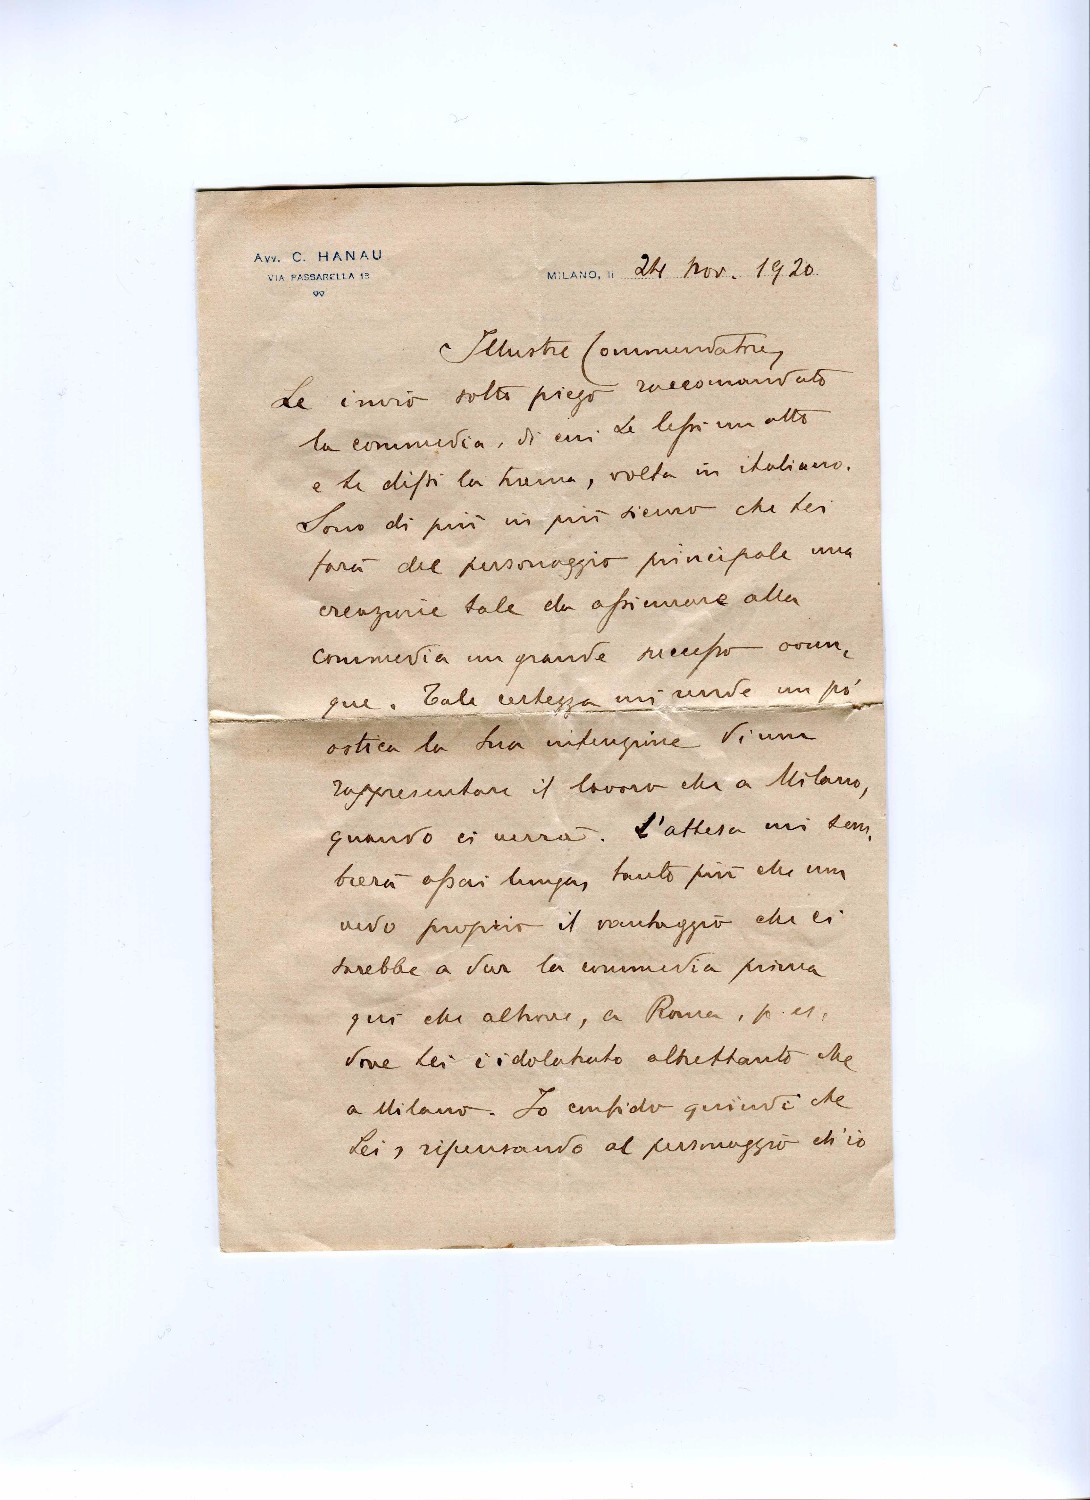 Avv. C. HANAU
VIA PASSARELLA 13
MILANO, li 24 Nov. 1920
Illustre Commendatore,
Le invio sotto piego raccomandato
la commedia, di cui Le lessi un atto
e Le dissi la trama, volta in italiano.
Sono di più in più sicuro che Lei
farà del personaggio principale una
creazione tale da assicurare alla
commedia un grande successo ovun-
que. Tale certezza mi rende un pó
ostica la Sua intenzione di non
rappresentare il lavoro che a Milano,
quando ci verrà. L'attesa mi sem-
brerà assai lunga, tanto più che non
vedo proprio il vantaggio che ci
sarebbe a dar la commedia prima
qui che altrove, a Roma, p. es.,
dove Lei è idolatrato altrettanto che
a Milano. Io confido quindi che
Lei, ripensando al personaggio ch'io